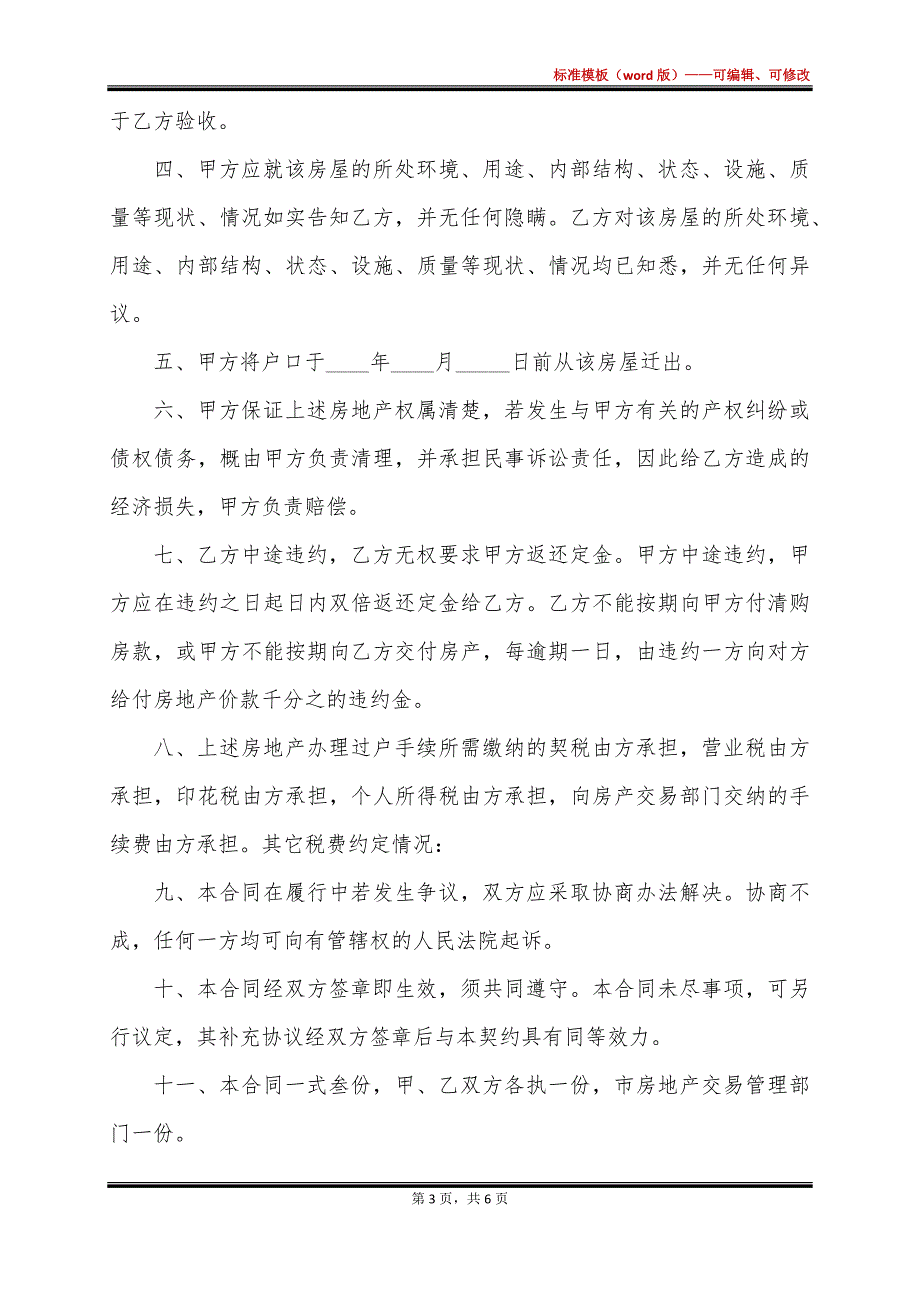 标准模板（word 版）——可编辑、可修改
于乙方验收。
四、甲方应就该房屋的所处环境、用途、内部结构、状态、设施、质
量等现状、情况如实告知乙方，并无任何隐瞒。乙方对该房屋的所处环境、
用途、内部结构、状态、设施、质量等现状、情况均已知悉，并无任何异
议。
五、甲方将户口于____年____月_____日前从该房屋迁出。
六、甲方保证上述房地产权属清楚，若发生与甲方有关的产权纠纷或
债权债务，概由甲方负责清理，并承担民事诉讼责任，因此给乙方造成的
经济损失，甲方负责赔偿。
七、乙方中途违约，乙方无权要求甲方返还定金。甲方中途违约，甲
方应在违约之日起日内双倍返还定金给乙方。乙方不能按期向甲方付清购
房款，或甲方不能按期向乙方交付房产，每逾期一日，由违约一方向对方
给付房地产价款千分之的违约金。
八、上述房地产办理过户手续所需缴纳的契税由方承担，营业税由方
承担，印花税由方承担，个人所得税由方承担，向房产交易部门交纳的手
续费由方承担。其它税费约定情况：
九、本合同在履行中若发生争议，双方应采取协商办法解决。协商不
成，任何一方均可向有管辖权的人民法院起诉。
十、本合同经双方签章即生效，须共同遵守。本合同未尽事项，可另
行议定，其补充协议经双方签章后与本契约具有同等效力。
十一、本合同一式叁份，甲、乙双方各执一份，市房地产交易管理部
门一份。
第 3 页，共 6 页